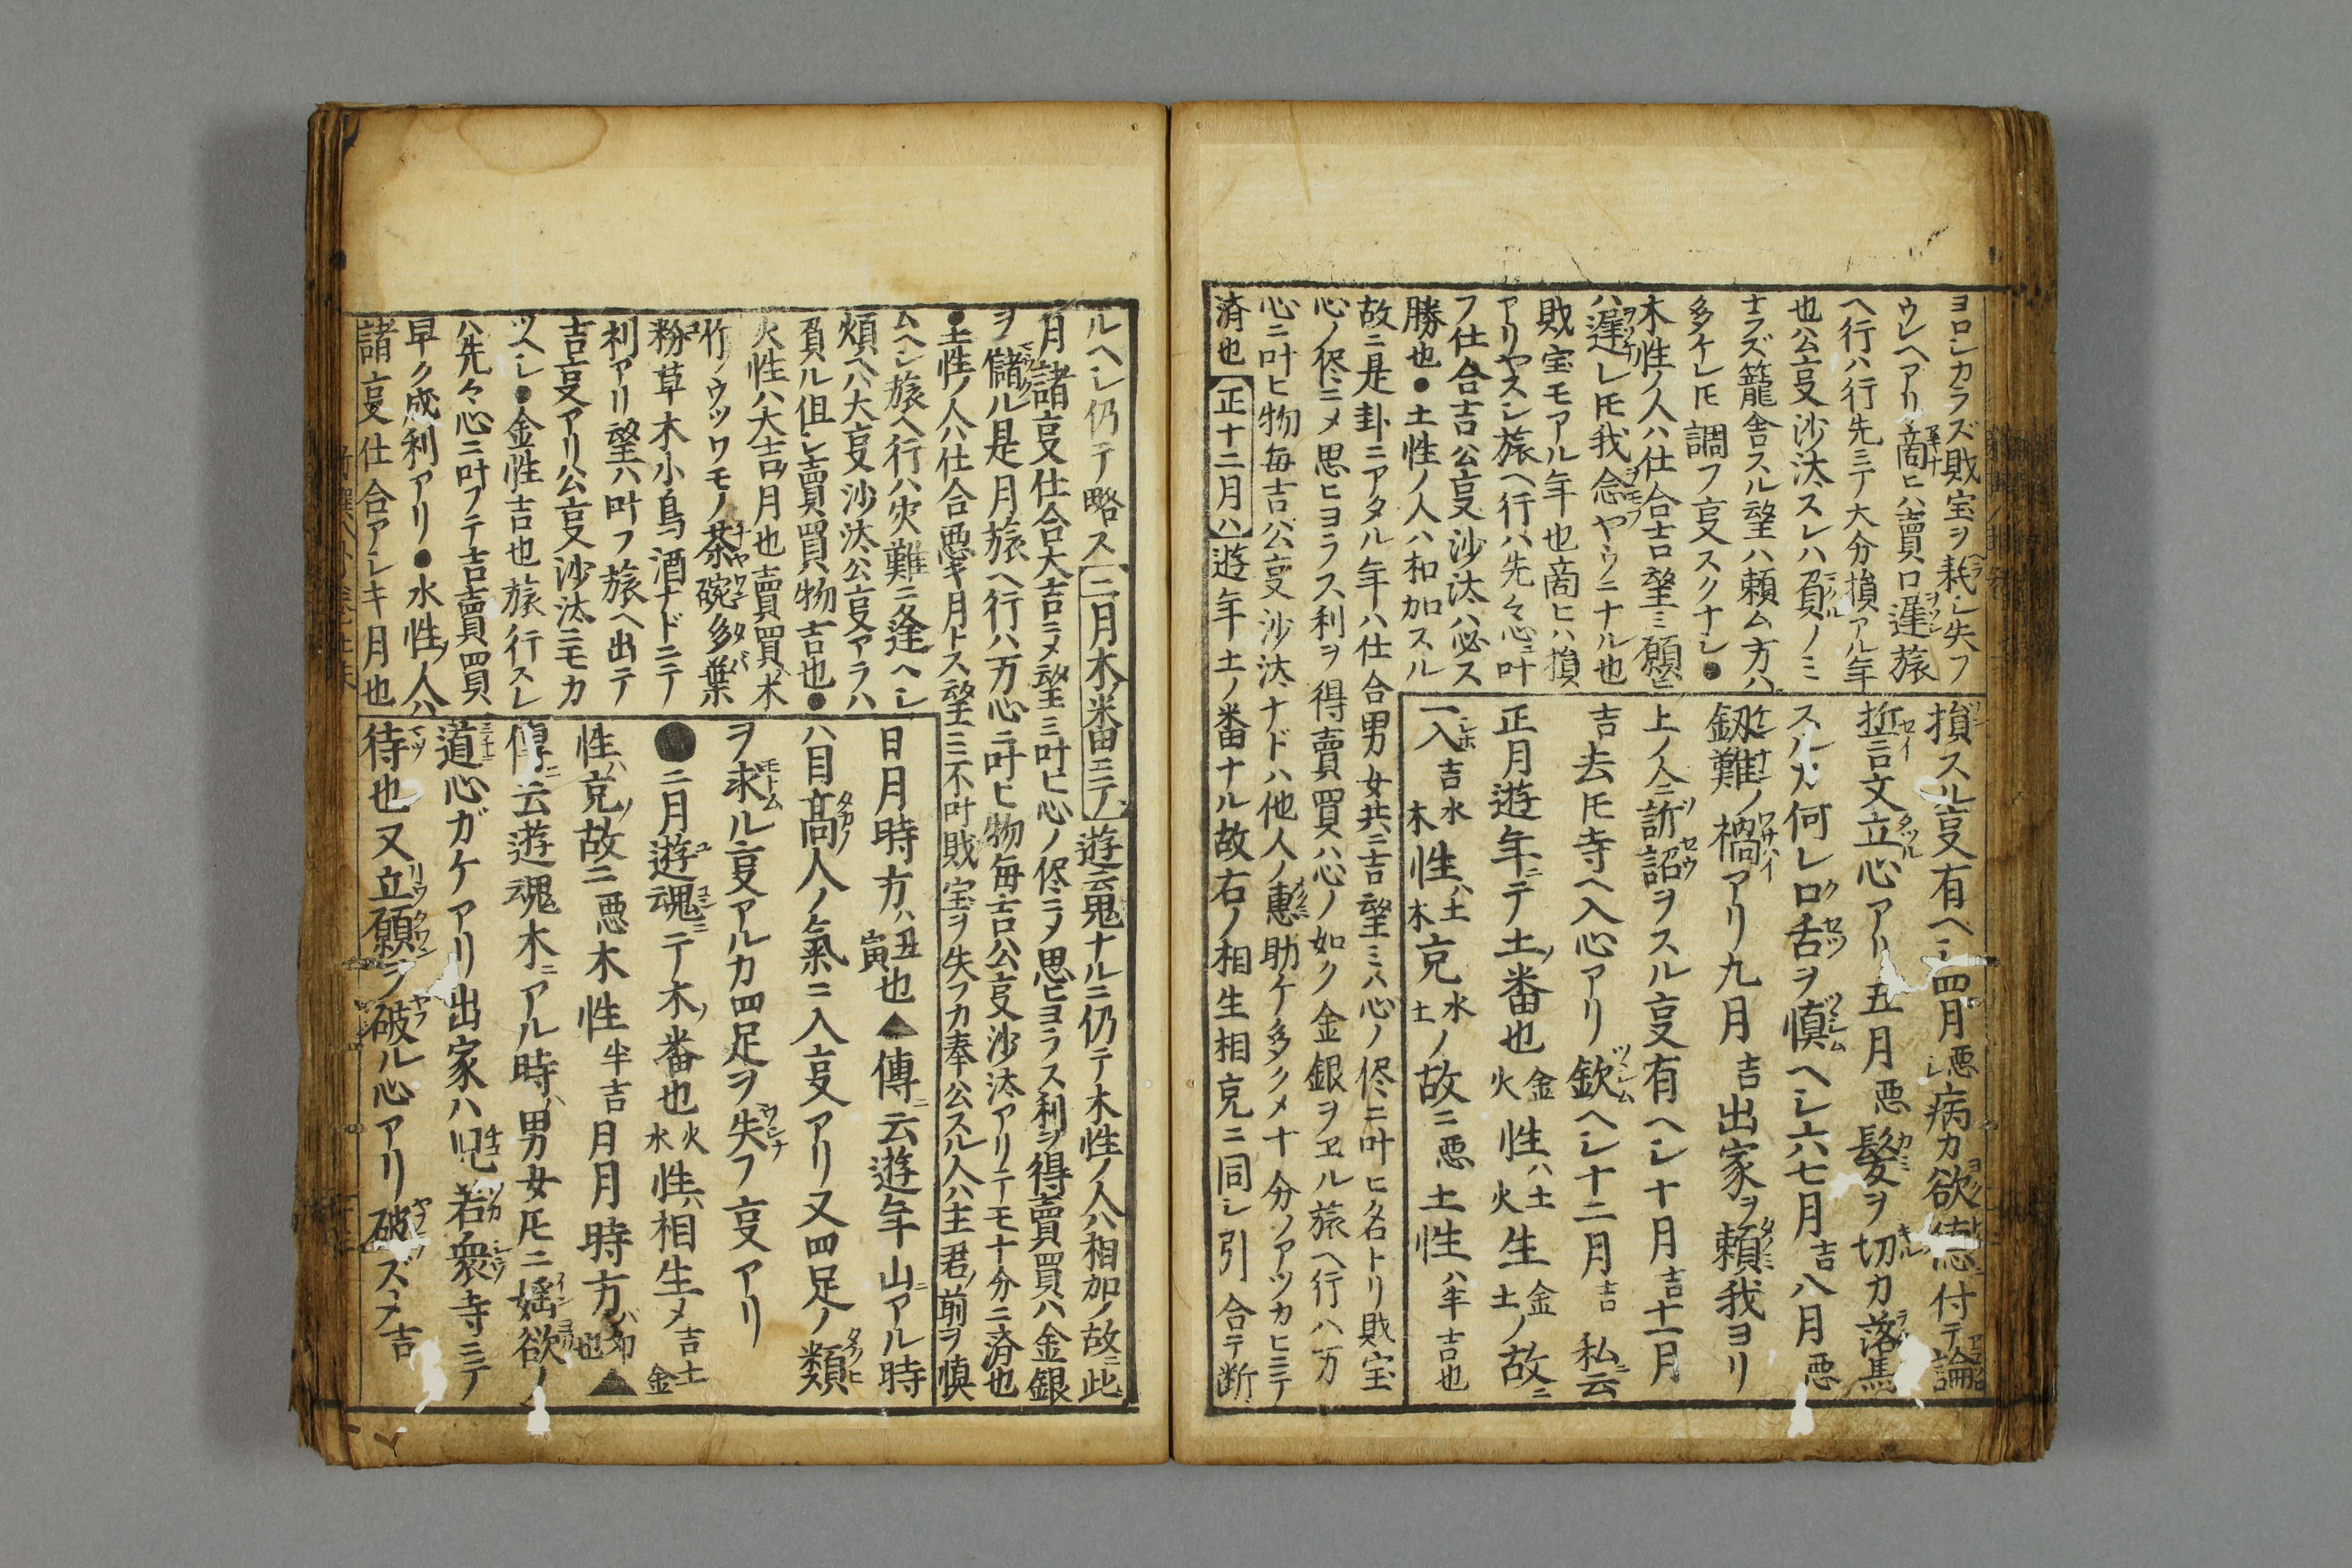 ヨロシカラズ敗宝ヲ耗シ失フ
ウレヘアリ商ヒハ賣口遅旅
ヘ行ハ行先ニテ大分損アル年
也公㕝沙汰スレハ負ノミ
ナラズ籠舎スル望ハ頼ム方ハ
多ケレ𪜈調フ㕝スクナシ●
木性ノ人ハ仕合吉望ミ願ヒ
ハ遅レ𪜈我念ヤウニナル也
敗宝モアル年也商ヒハ損
アリヤスシ旅ヘ行ハ先々心ニ叶
フ仕合吉公㕝沙汰ハ必ス
勝也●土性ノ人ハ和加スル
故ニ是卦ニアタル年ハ仕合男女共ニ吉望ミハ心ノ侭ニ叶ヒ名トリ敗宝
心ノ侭ニメ思ヒヨラス利ヲ得賣買ハ心ノ如ク金銀ヲヱル旅ヘ行ハ万
心ニ叶ヒ物毎吉公㕝沙汰ナドハ他人ノ惠助ケ多クメ十分ノアツカヒニテ
済也 正十二月ハ 遊年土ノ番ナル故右ノ相生相克ニ同シ引合テ断
損スル㕝有ヘシ四月悪病カ欲徳付テ論
誓言文立心アリ五月悪髪ヲ切カ落馬
スル欤何レ口舌ヲ慎ヘシ六七月吉八月悪
釼難ノ禍アリ九月吉出家ヲ頼我ヨリ
上ノ人ニ訴詔ヲスル㕝有ヘシ十月吉十一月
吉去𪜈寺ヘ入心アリ欽ヘシ十二月吉私ニ云
正月遊年ニテ土ノ番也金火性ハ土火生金土ノ故ニ
一入吉水木性ハ土木克水土ノ故ニ悪土性ハ半吉也
ルヘシ仍テ略ス 二月木米畨ニテ 遊云鬼ナルニ仍テ木性ノ人ハ相加ノ故ニ此
月諸㕝仕合大吉ニメ望ミ叶ヒ心ノ侭ニメ思ヒヨラス利ヲ得賣買ハ金銀
ヲ儲ル是月旅ヘ行ハ万心ニ叶ヒ物毎吉公㕝沙汰アリテモ十分ニ済也
●土性ノ人ハ仕合悪キ月トス望ミ不叶敗宝ヲ失フカ奉公スル人ハ主君ノ前ヲ慎
ムヘシ旅ヘ行ハ灾難ニ逢ヘシ
煩ヘハ大㕝沙汰公㕝アラハ
負ル但シ賣買物吉也●
火性ハ大吉月也賣買ハ木
竹ノウツワモノ茶碗多葉
粉草木小鳥酒ナドニテ
利アリ望ハ叶フ旅ヘ出テ
吉㕝アリ公㕝沙汰ニモカ
ツヘシ●金性吉也旅行スレ
ハ先々心ニ叶フテ吉賣買
早ク成利アリ●水性ノ人ハ
諸㕝仕合アシキ月也
日月時方ハ丑寅也▲傳ニ云遊年山ニアル時
ハ目高人ノ氣ニ入㕝アリ又四足ノ類
ヲ求ル㕝アルカ四足ヲ失フ㕝アリ
●二月遊魂ニテ木ノ番也火水性ハ相生メ吉土金
性ハ克ノ故ニ悪木性半吉日月時方ハ卯也▲
傳ニ云遊魂木ニアル時ハ男女𪜈ニ婬欲ノ
道心ガケアリ出家ハ児若衆寺ニテ
待也又立願ヲ破ル心アリ破ズメ吉